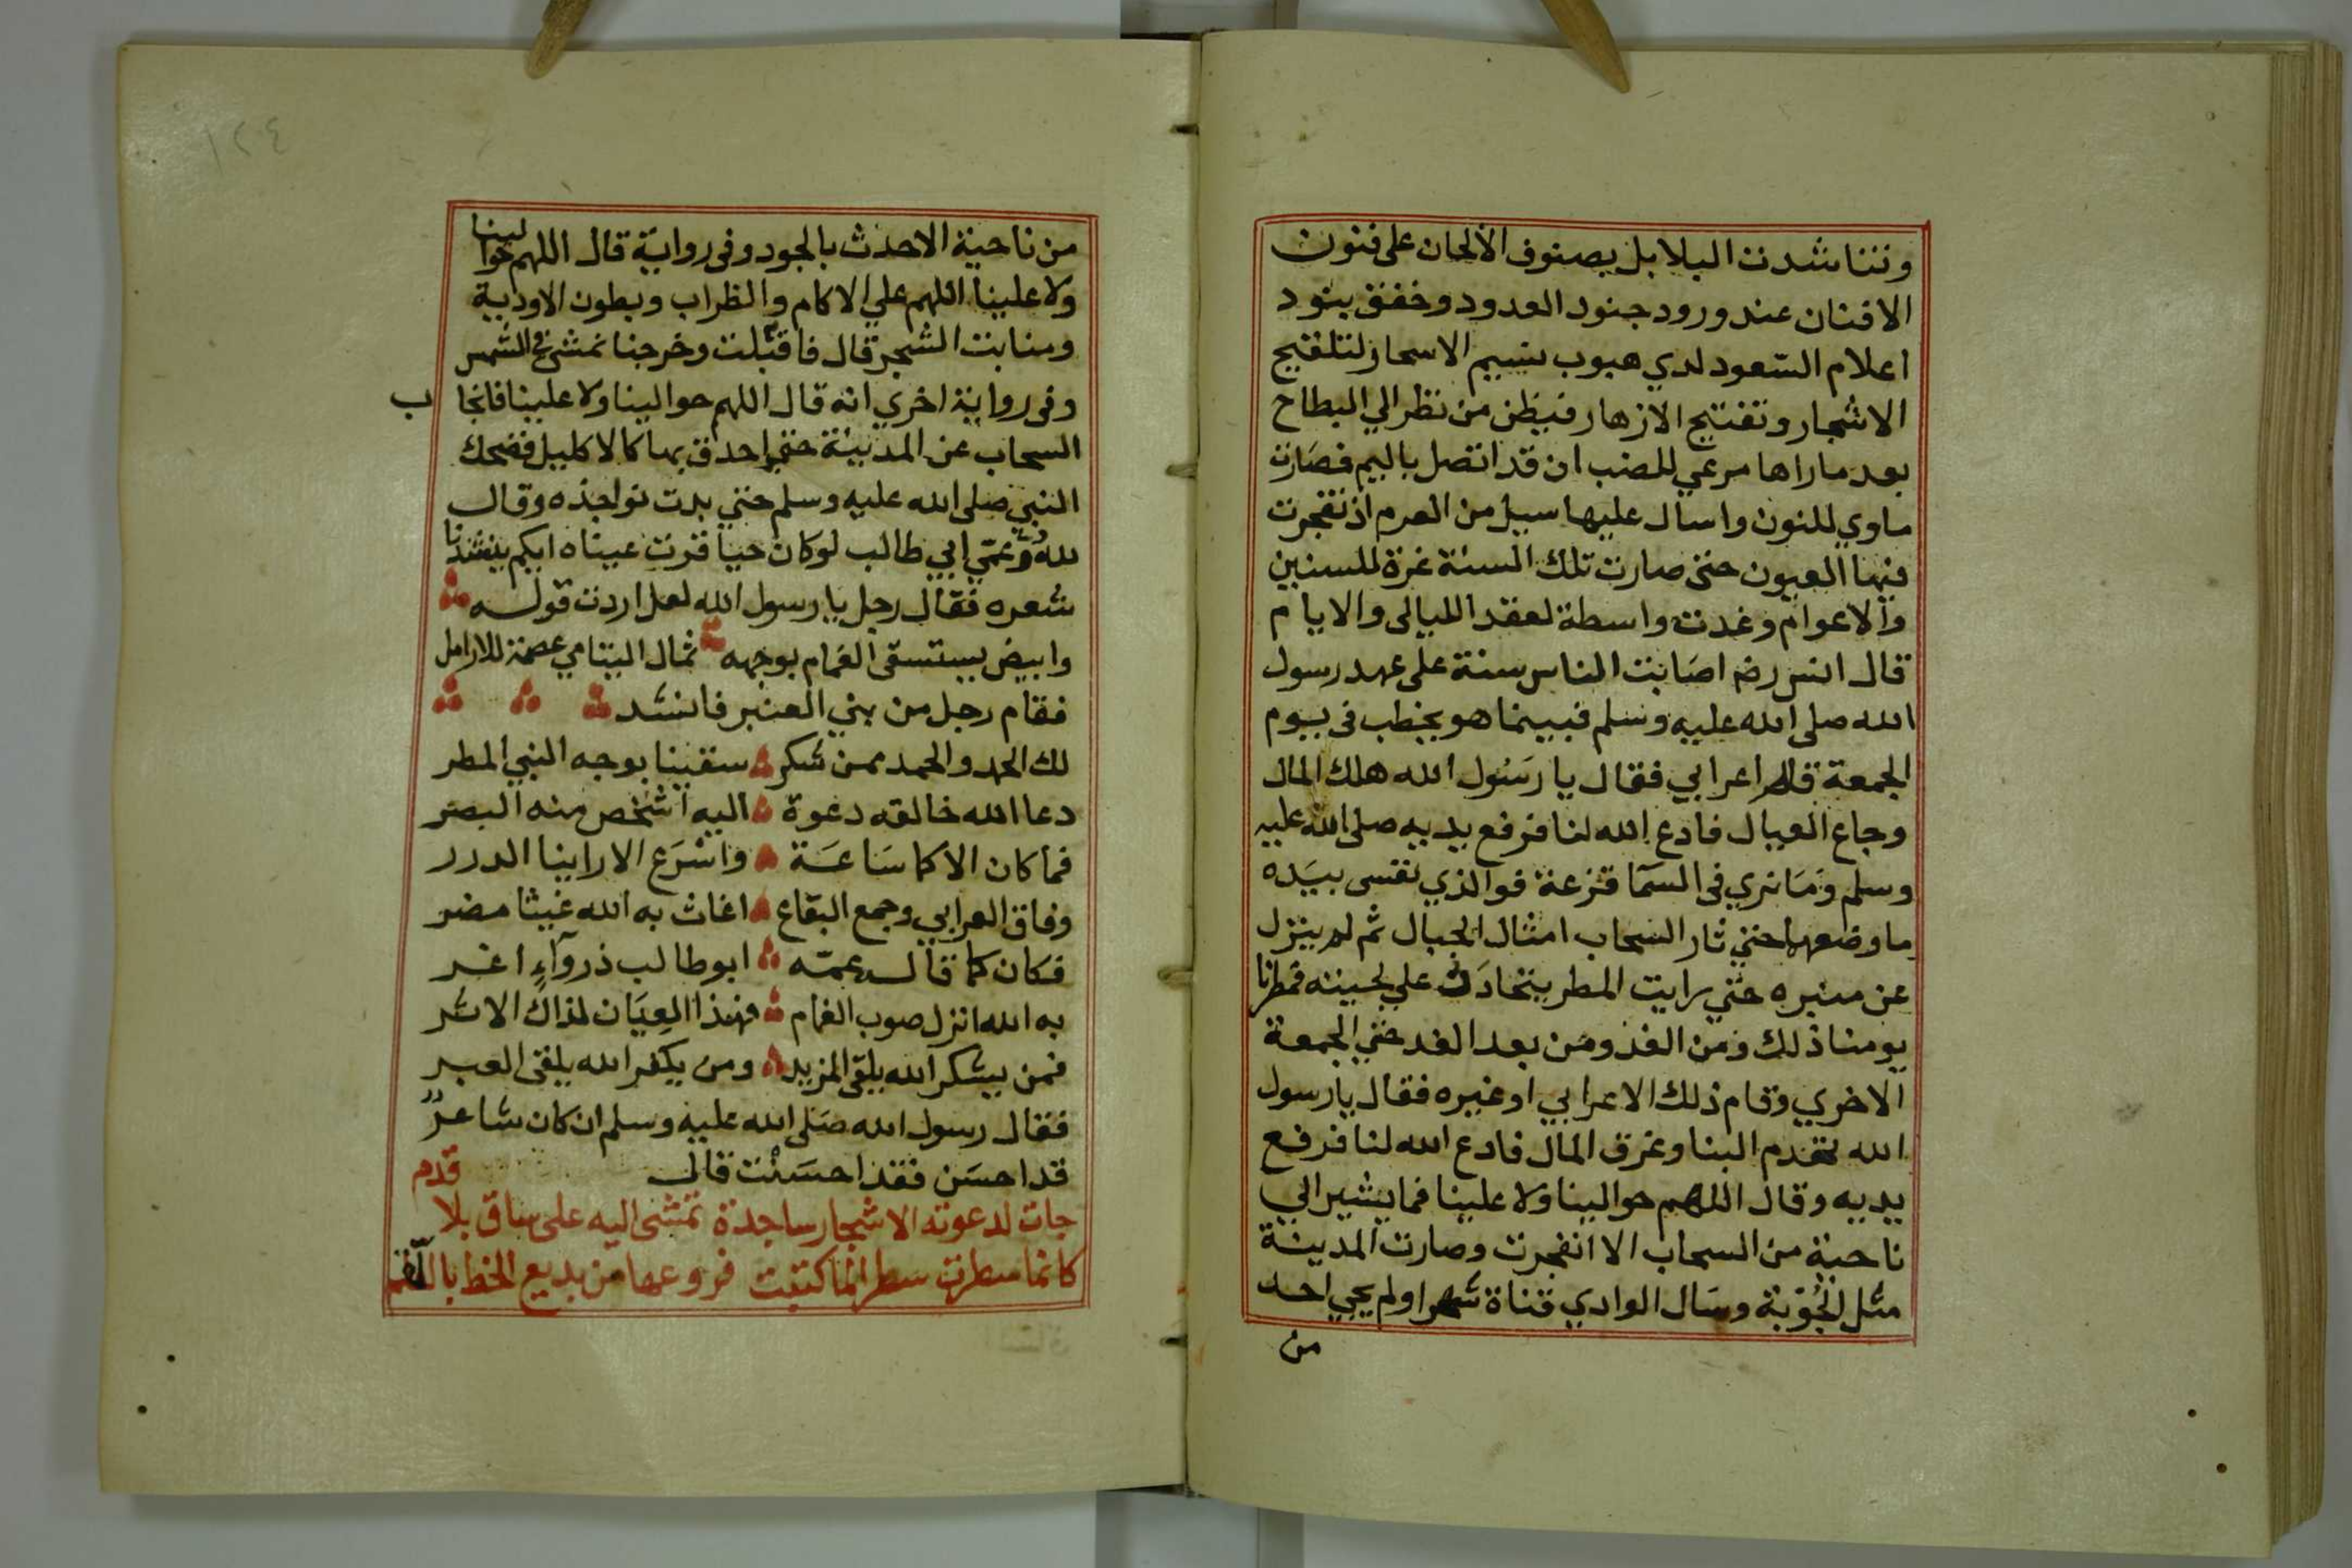 وتناشدت البلابل بصنوف الألحان على فنون
الافنان عند ورود جنود المدود وخفق بنود
اعلام السعود لدي هبوب نسيم الاسحار لتلقيح
الاشجار وتفتيح الازهار فيظن من نظر الي البطاح
بعد ما راها مرعي للضب ان قد اتصل باليم فصارت
ماوي للنون واسال عليها سيل من العرم اذ تفجرت
فيها العيون حتى صارت تلك السنة غرة للسنين
والاعوام وغدت واسطة لعقد الليالى والايام
قال انس رضه اصابت الناس سنة على عهد رسول
الله صلى الله عليه وسلم فبينما هو يخطب فى يوم
الجمعة قام اعرابي فقال يا رسول الله هلك المال
وجاع العيال فادع الله لنا فرفع يديه صلى الله عليه
وسلم وما نري فى السما قزعة فوالذي نفسى بيده
ما وضعها حتي ثار السحاب امثال الجبال ثم لم ينزل
عن منبره حتي رايت المطر يتحادر علي لحيته فمطرنا
يومنا ذلك ومن الغد ومن بعد الغد حتي الجمعة
الاخري وقام ذلك الاعرابي او غيره فقال يا رسول
الله تهدم البنا وغرق المال فادع الله لنا فرفع
يديه وقال اللهم حوالينا ولا علينا فما يشير الي
ناحية من السحاب الا انفجرت وصارت المدينة
مثل الجوبة وسال الوادي قناة شهرا ولم يجي احد
من
١٢٤
من ناحية الاحدث بالجود وفى رواية قال اللهم حوالينا
ولا علينا اللهم علي الاكام والظراب وبطون الاودية
ومنابت الشجر قال فاقلت وخرجنا نمشي في الشمس
وفى رواية اخري انه قال اللهم حوالينا ولا علينا فانجاب
السحاب عن المدينة حتي احدق بها كالاكليل فضحك
النبي صلى الله عليه وسلم حتي بدت نواجذه وقال
لله در عمي ابي طالب لو كان حيا قرت عيناه ايكم ينشدنا
شعره فقال رجل يا رسول الله لعل اردت قوله
وابيض يستسقى الغمام بوجهه ثمال اليتامي عصمة للارامل
فقام رجل من بني العنبر فانشد
لك الحمد والحمد ممن شكر سقينا بوجه النبي المطر
دعا الله خالقه دعوة اليه اشخص منه البصر
فما كان الا كما ساعة واسرع الا راينا الدرر
وفاق العرابي وجمع البقاع اغاث به الله غيثا مضر
فكان كما قال عمه ابو طالب ذو رواء اغر
به الله انزل صوب الغمام فهذا العيان لذاك الاثر
فمن يشكر الله يلقى المزيد ومن يكفر الله يلقى العبر
فقال رسول الله صلى الله عليه وسلم ان كان شاعر
قد احسن فقد احسنت قال
جات لدعوته الاشجار ساجدة تمشى اليه على ساق بلا قدم
كانما سطرت سطرا لما كتبت فروعها من بديع الخط باللقم